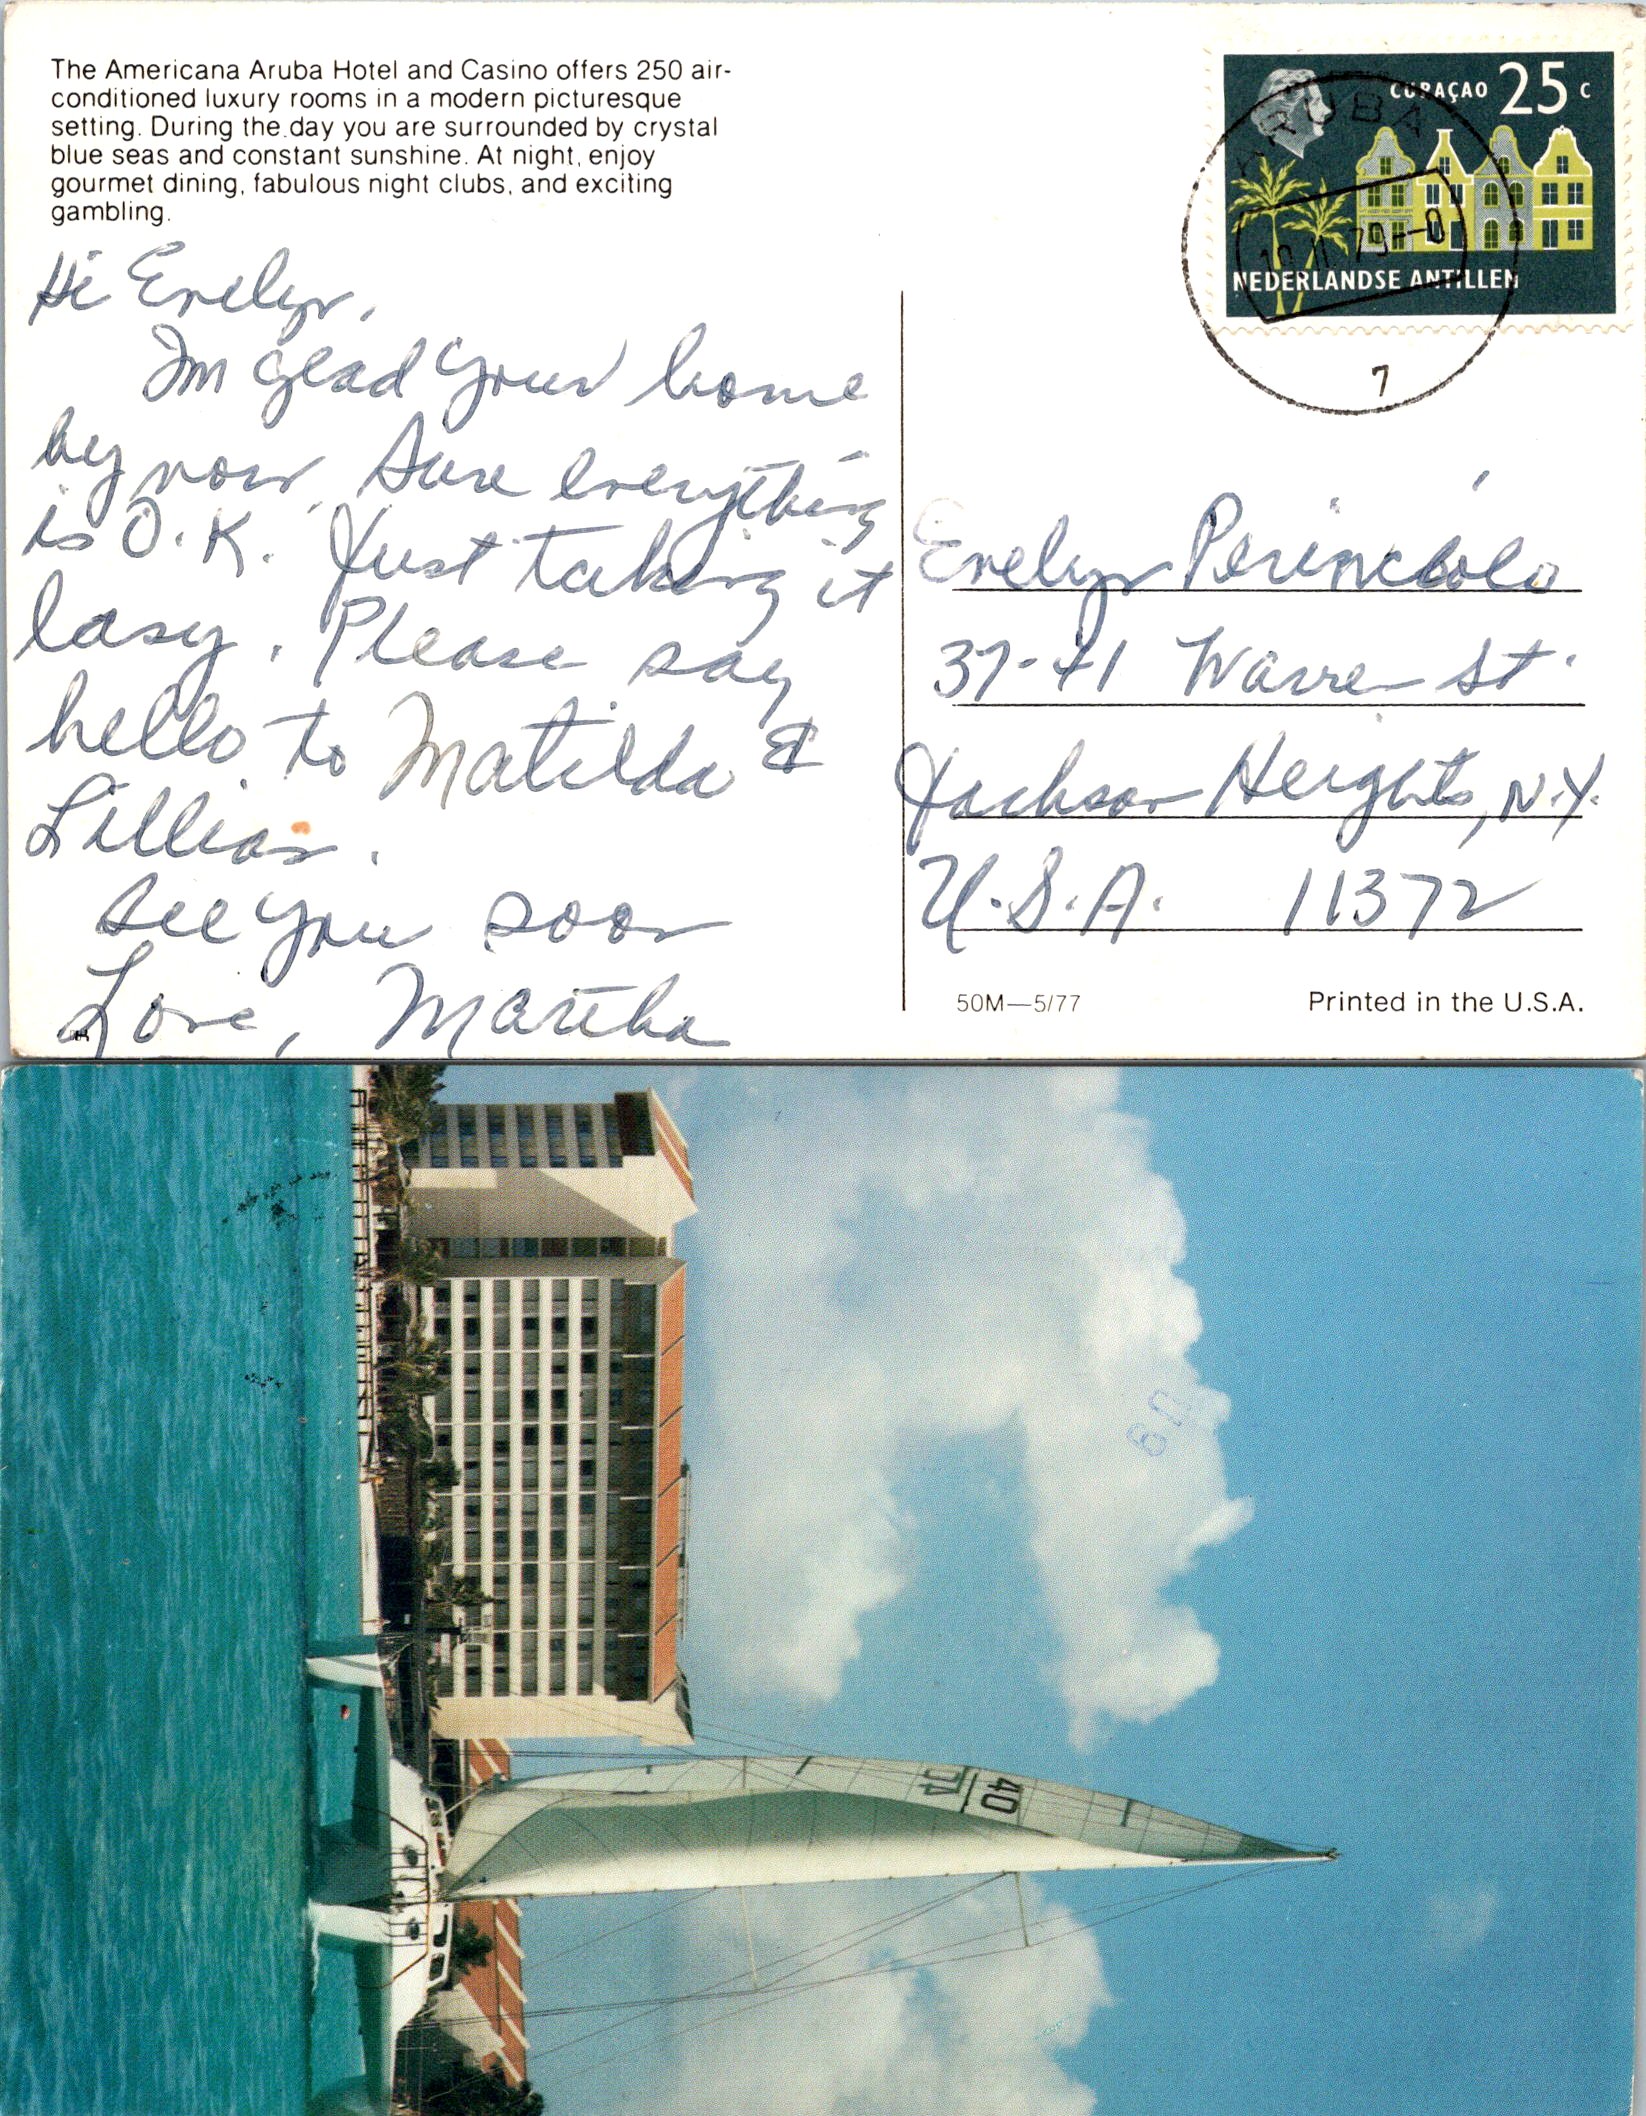 The Americana Aruba Hotel and Casino offers 250 air-
conditioned luxury rooms in a modern picturesque
setting. During the day you are surrounded by crystal
blue seas and constant sunshine. At night, enjoy
gourmet dining, fabulous night clubs, and exciting
gambling.
CURAÇAO 25 C
NEDERLANDSE ANTILLEN
ARUBA
7
Hi Evelyn,
Im glad your home
by now. Sure everything
is O.K. Just taking it
easy. Please say
hello to Matilda &
Lillian.
See you soon
Love, Martha
Evelyn
37-41 Warren St.
Jackson Heights, N.Y.
U.S.A. 11372
50M—5/77
Printed in the U.S.A.
40